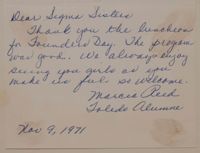 Dear Sigma Sisters
Thank you the luncheon
for Founders Day. The program
was good. We always enjoy
seeing you girls as you
make us feel so welcome.
Marcia Reid
Toledo Alumne
Nov 9, 1971